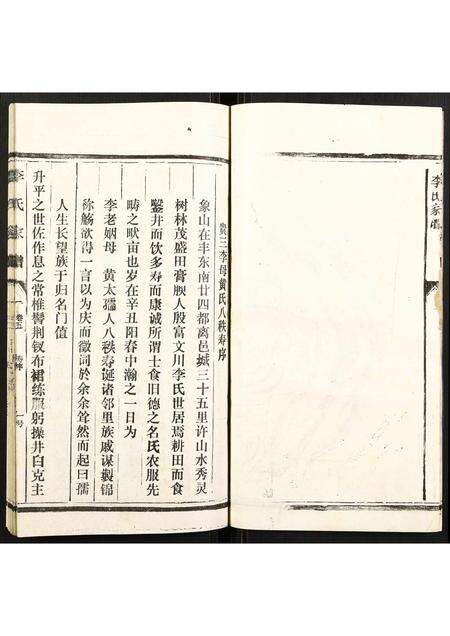 李氏家譜
三李母黄氏八秩寿序
象山在丰东南廿四都离邑城三十五里许山水秀灵
树林茂盛田膏腴人殷富文川李氏世居焉耕田而食
鑿井而饮多寿而康诚所谓士食旧德之名氏农服先
畴之畎亩也岁在辛丑阳春中瀚之一日为
李老姻母 黄太孺人八秩寿诞诸邻里族戚谋製锦
称觞欲得一言以为庆而徵词於余余耸然而起曰孺
人生长望族于归名门值
升平之世佐作息之常椎髻荆钗布裙练服躬操井臼克主
李氏家譜
卷五
一号